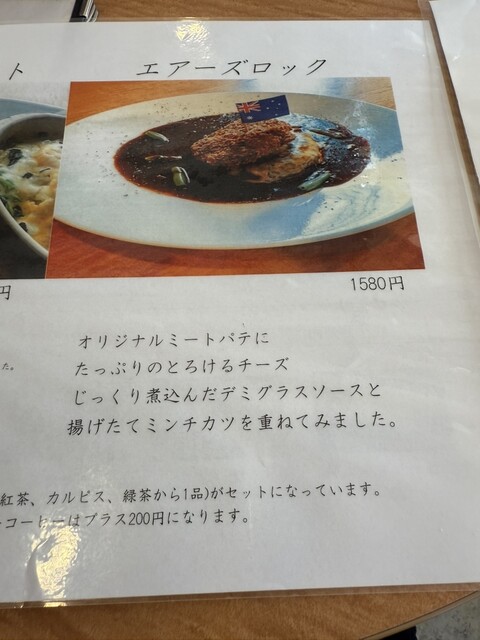 ト
エアーズロック
円
1580円
た。
オリジナルミートパテに
たっぷりのとろけるチーズ
じっくり煮込んだデミグラスソースと
揚げたてミンチカツを重ねてみました。
紅茶、カルピス、緑茶から1品)がセットになっています。
コーヒーはプラス200円になります。